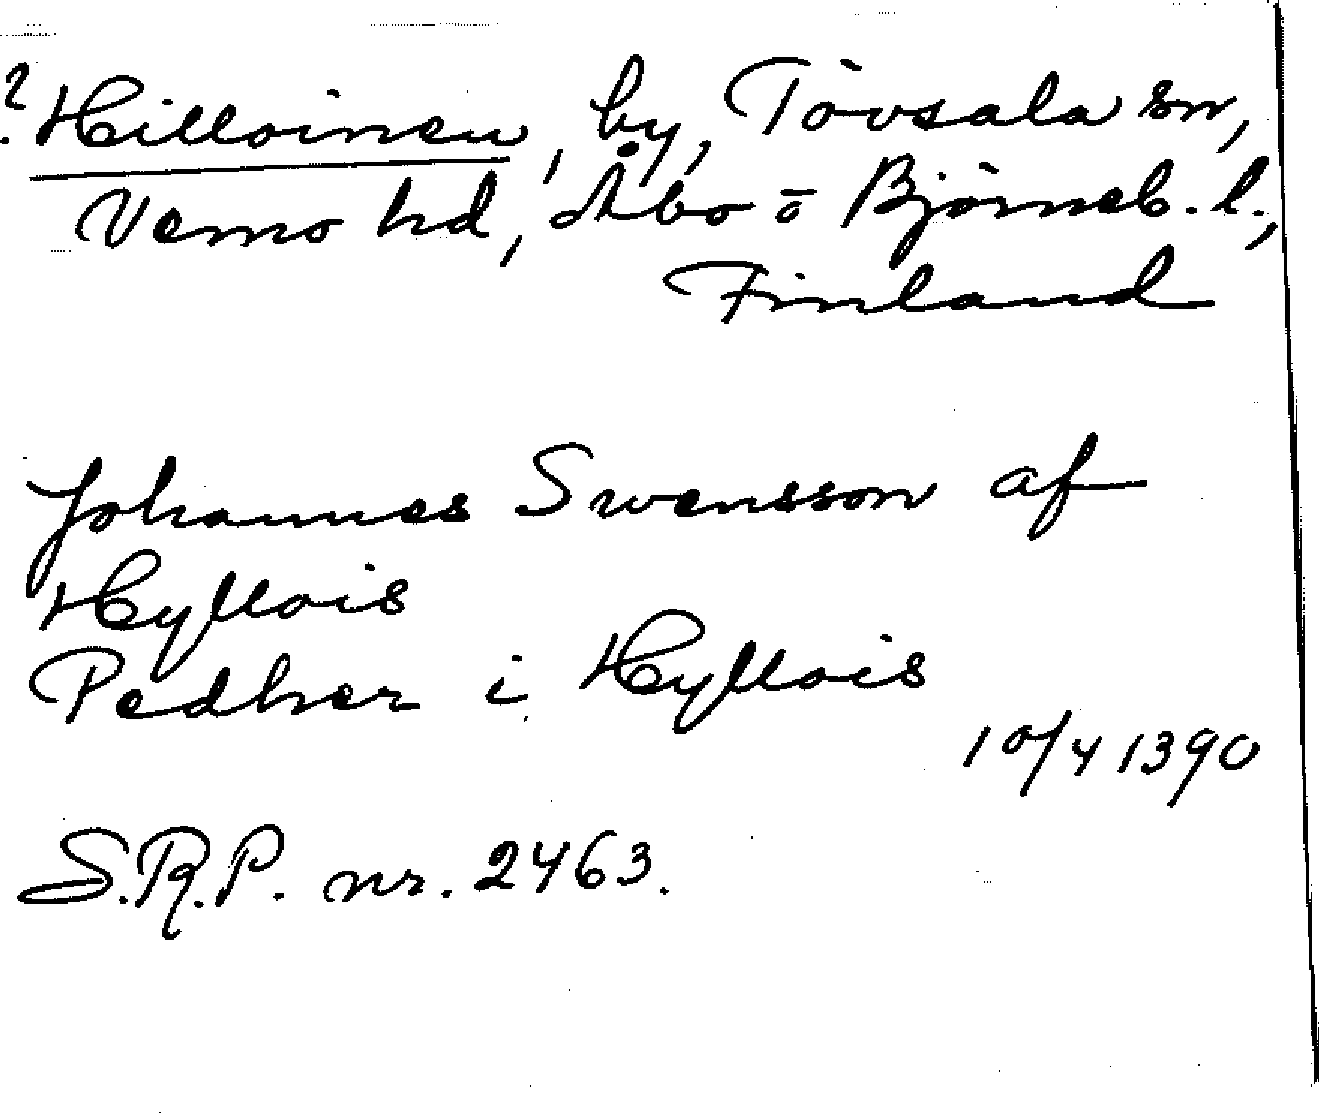 ? Hilloinen, by, Tövsala sn,
Vemo hd, Åbo o Björneb. l.,
Finland
Johannes Swensson af
Hyllois
Pedher i Hyllois
10/4 1390
S.R.P. nr. 2463.